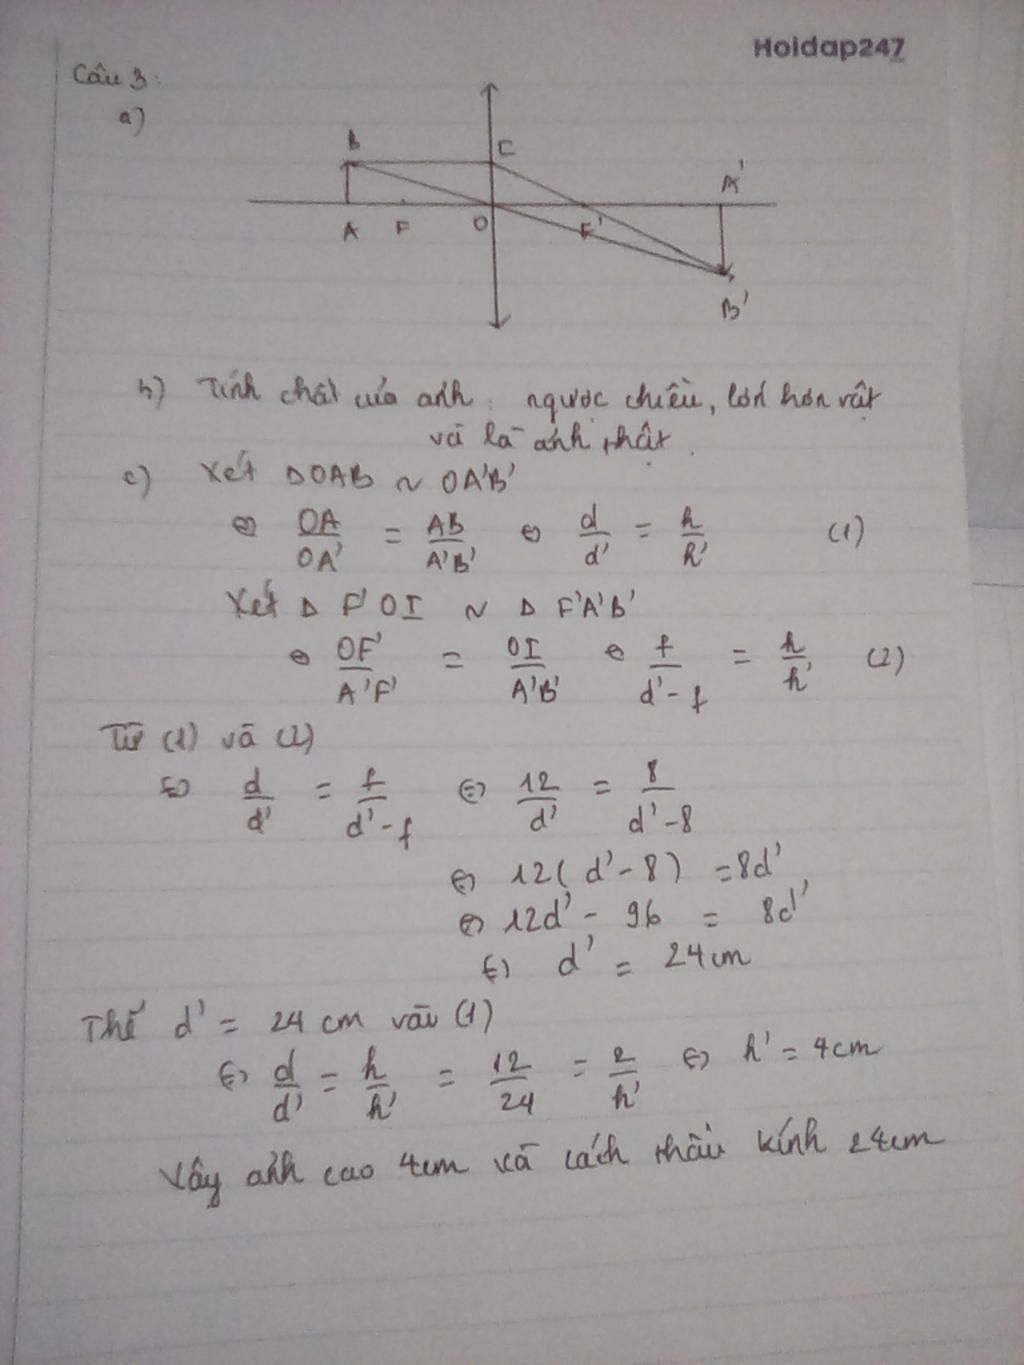 Hoidap247
Câu 3:
a)
B C A'
A F O F'
B'
b) Tính chất của ảnh: ngược chiều, lớn hơn vật
và là ảnh thật.
c) Xét ΔOAB ~ OA'B'
⇔ OA/OA' = AB/A'B' ⇔ d/d' = h/h' (1)
Xét Δ F'OI ~ Δ F'A'B'
⇔ OF'/A'F' = OI/A'B' ⇔ f/d'-f = h/h' (2)
Từ (1) và (2)
⇔ d/d' = f/d'-f ⇔ 12/d' = 8/d'-8
⇔ 12(d'-8) = 8d'
⇔ 12d' - 96 = 8d'
⇔ d' = 24cm
Thế d' = 24 cm vào (1)
⇔ d/d' = h/h' = 12/24 = 2/h' ⇔ h' = 4cm
Vậy ảnh cao 4cm và cách thấu kính 24cm